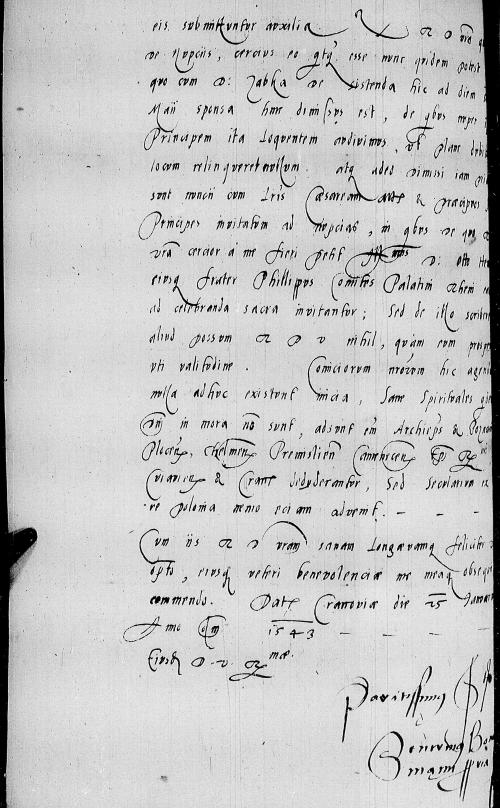 eis submittuntur auxilia. R D Vrã
de Nupciis, cercius eo qtq esse nunc quidem potest
quo cum D: Zabka de sistenda hic ad diem
Maii sponsa hinc dimissus est, de qbus nuper
Principem ita loquentem audivimus, ut plane dubii
locum relinqueret nullum. atq adeo dimissi iam
sunt nuncii cum Lris Caesaream & praecipuos
Principes invitatum ad nupcias, in qbus de quo
Vrã cercior a me fieri petit D: Otto
eiusq frater Phillippus Comites Palatini Rheni
ad celebranda sacra invitantur; Sed de illo scribere
aliud possum R D V nihil, quam eum prospera
uti valitudine. Comiciorum nrorum hic agend
nulla adhuc existunt inicia, Sane Spirituales
in mora nõ sunt, adsunt em̃ Archieps & Poznan
Plocen, Chelmen Premislien Camenecen Epi R
Cuiavien & Craco Sed Secularium ex
re Polonia nemo eciam advenit. – – –
Cum iis R D Vram sanam Longaevamq feliciter
opto, eiusq veteri benevolenciae me meaq obsequia
commendo. Dat Cracoviae die 25 Januarii
Anno dm̃ 1543 – – –
Eiusd D. V. R mae.